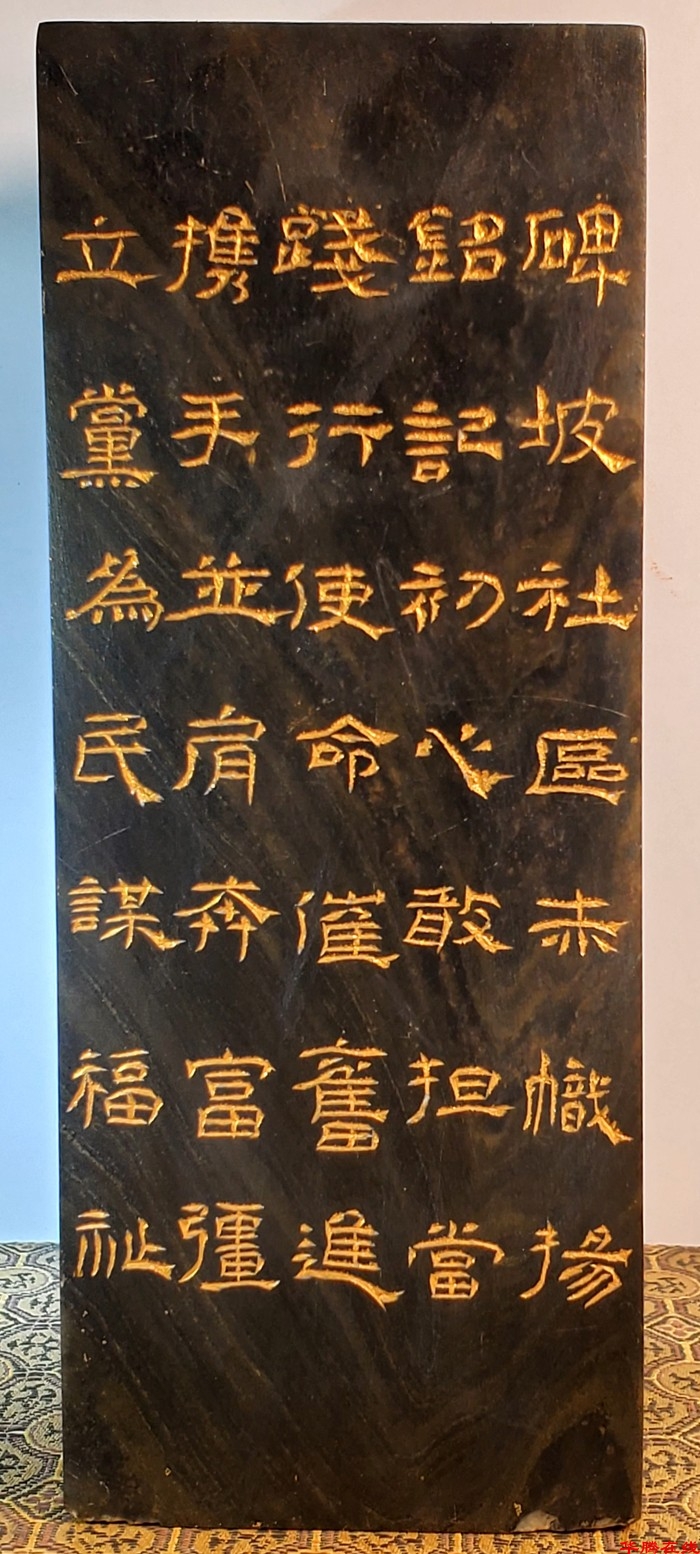 碑坡社區赤幟揚
銘記初心敢担當
踐行使命催奮進
携手並肩奔富彊
立黨為民謀福祉
华腾在线